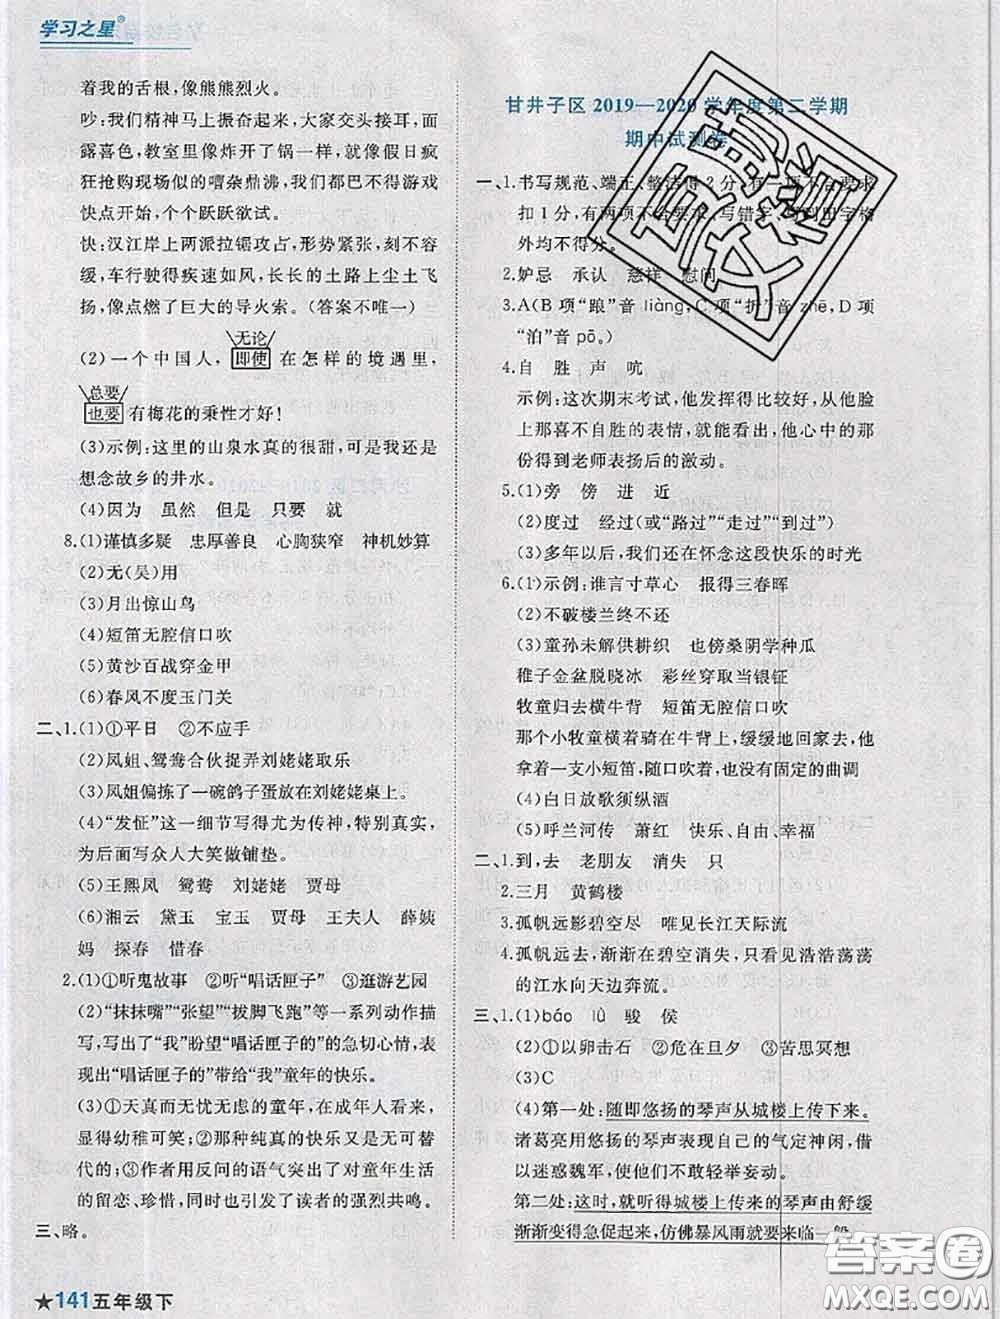 学习之星®
着我的舌根,像熊熊烈火。
吵:我们精神马上振奋起来,大家交头接耳,面
露喜色,教室里像炸开了锅一样,就像假日疯
狂抢购现场似的嘈杂鼎沸,我们都巴不得游戏
快点开始,个个跃跃欲试。
快:汉江岸上两派拉锯攻占,形势紧张,刻不容
缓,车行驶得疾速如风,长长的土路上尘土飞
扬,像点燃了巨大的导火索。(答案不唯一)
无论
(2)一个中国人,即使在怎样的境遇里,
总要
也要有梅花的秉性才好!
(3)示例:这里的山泉水真的很甜,可是我还是
想念故乡的井水。
(4)因为 虽然 但是 只要 就
8.(1)谨慎多疑 忠厚善良 心胸狭窄 神机妙算
(2)无(吴)用
(3)月出惊山鸟
(4)短笛无腔信口吹
(5)黄沙百战穿金甲
(6)春风不度玉门关
二、1.(1)①平日 ②不应手
(2)凤姐、鸳鸯合伙捉弄刘姥姥取乐
(3)凤姐偏拣了一碗鸽子蛋放在刘姥姥桌上。
(4)“发怔”这一细节写得尤为传神,特别真实,
为后面写众人大笑做铺垫。
(5)王熙凤 鸳鸯 刘姥姥 贾母
(6)湘云 黛玉 宝玉 贾母 王夫人 薛姨
妈 探春 惜春
2.(1)①听鬼故事 ②听“唱话匣子” ③逛游艺园
(2)“抹抹嘴”“张望”“拔脚飞跑”等一系列动作描
写,写出了“我”盼望“唱话匣子”的急切心情,表
现出“唱话匣子的”带给“我”童年的快乐。
(3)①天真而无忧无虑的童年,在成年人看来,
显得幼稚可笑;②那种纯真的快乐又是无可替
代的;③作者用反问的语气突出了对童年生活
的留恋、珍惜,同时也引发了读者的强烈共鸣。
三、略。
★141五年级下
甘井子区 2019—2020 学年度第二学期
期中试测卷
一、1.书写规范、端正、整洁得2分,有一项不合要求
扣1分,有两项不合要求、写错字、写到田字格
外均不得分。
2.妒忌 承认 慈祥 慰问
3.A(B项“踉”音 liàng,C项“折”音 zhē,D项
“泊”音 pō。)
4.自 胜 声 吭
示例:这次期末考试,他发挥得比较好,从他脸
上那喜不自胜的表情,就能看出,他心中的那
份得到老师表扬后的激动。
5.(1)旁 傍 进 近
(2)度过 经过(或“路过”“走过”“到过”)
(3)多年以后,我们还在怀念这段快乐的时光
6.(1)示例:谁言寸草心 报得三春晖
(2)不破楼兰终不还
(3)童孙未解供耕织 也傍桑阴学种瓜
稚子金盆脱晓冰 彩丝穿取当银钲
牧童归去横牛背 短笛无腔信口吹
那个小牧童横着骑在牛背上,缓缓地回家去,他
拿着一支小短笛,随口吹着,也没有固定的曲调
(4)白日放歌须纵酒
(5)呼兰河传 萧红 快乐、自由、幸福
二、1.到,去 老朋友 消失 只
2.三月 黄鹤楼
3.孤帆远影碧空尽 唯见长江天际流
4.孤帆远去,渐渐在碧空消失,只看见浩浩荡荡
的江水向天边奔流。
三、1.(1)báo lǜ 骏 侯
(2)①以卵击石 ②危在旦夕 ③苦思冥想
(3)C
(4)第一处:随即悠扬的琴声从城楼上传下来。
诸葛亮用悠扬的琴声表现自己的气定神闲,借
以迷惑魏军,使他们不敢轻举妄动。
第二处:这时,就听得城楼上传来的琴声由舒缓
渐渐变得急促起来,仿佛暴风雨就要来临一般
答案圈
MXQE.COM